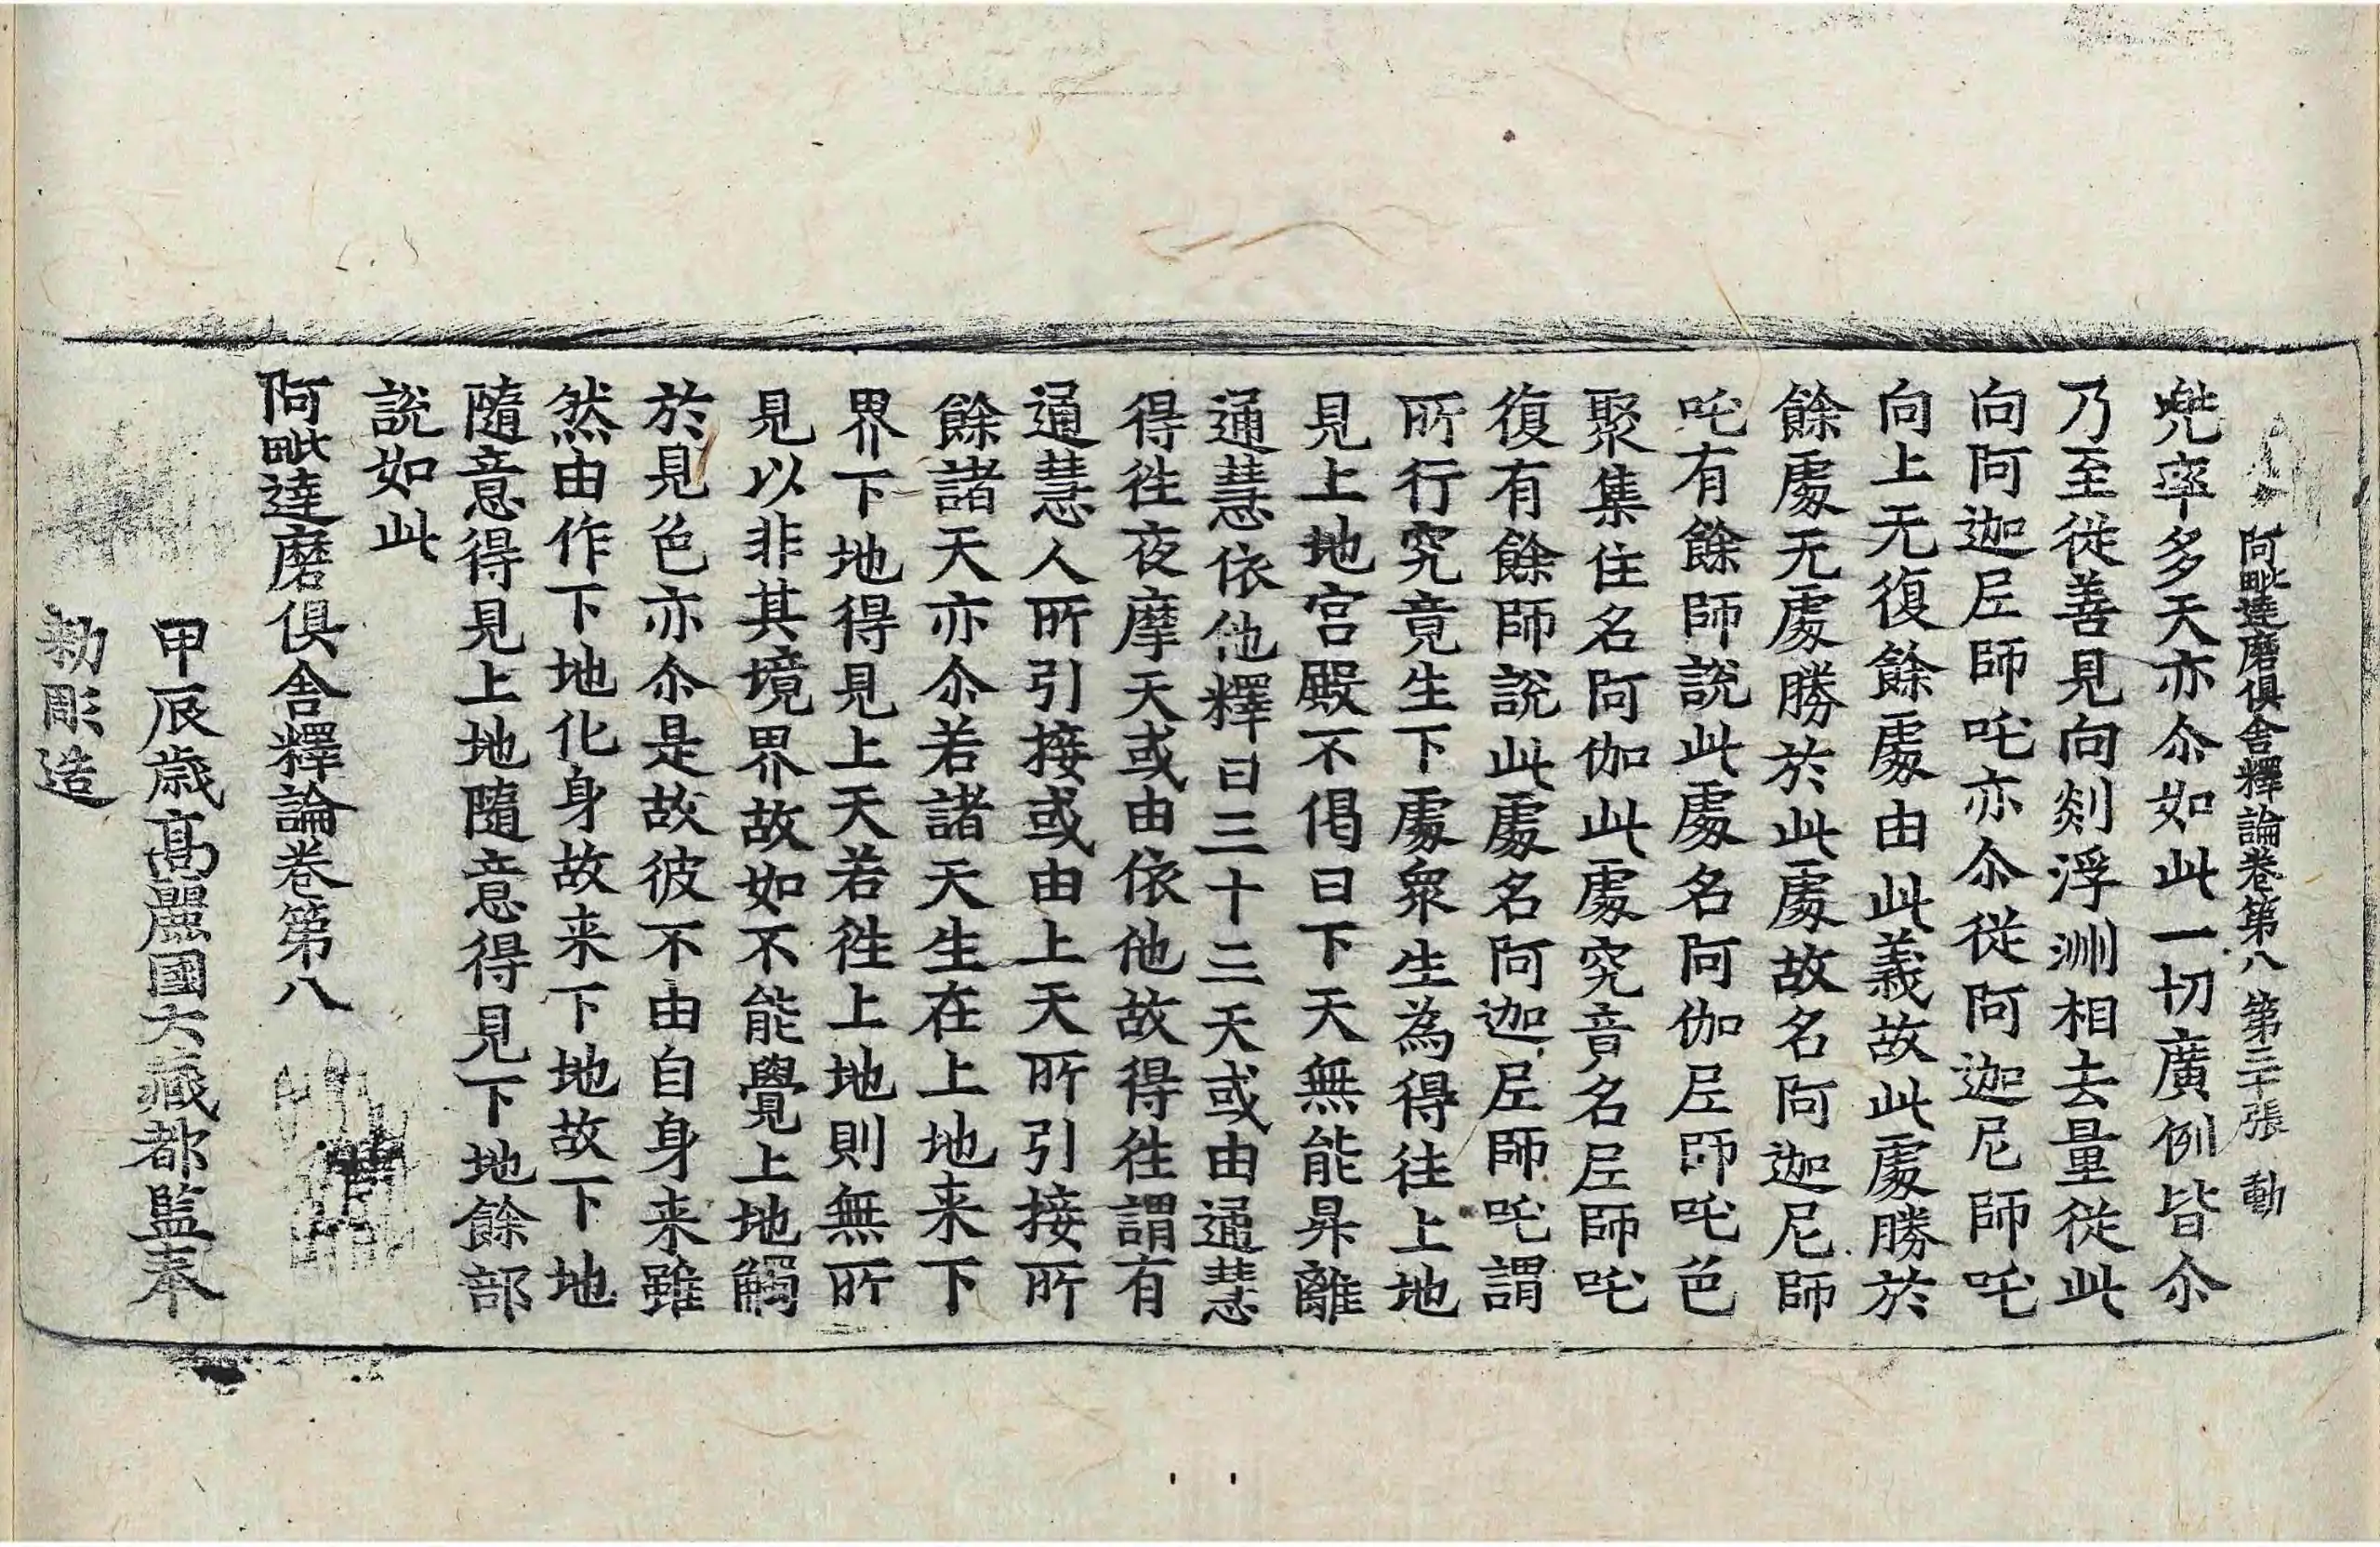 阿毗達磨俱舍釋論卷第八 第二十張 動
兠率多天亦尒如此一切廣例皆尒
乃至從善見向剡浮洲相去量從此
向阿迦尼師吒亦尒從阿迦尼師吒
向上无復餘處由此義故此處勝於
餘處无處勝於此處故名阿迦尼師
吒有餘師說此處名阿伽尼師吒色
聚集住名阿伽此處究竟名尼師吒
復有餘師說此處名阿迦尼師吒謂
所行究竟生下處衆生為得往上地
見上地宮殿不偈曰下天無能昇離
通慧依他釋曰三十三天或由通慧
得徃夜摩天或由依他故得徃謂有
通慧人所引接或由上天所引接所
餘諸天亦尒若諸天生在上地来下
界下地得見上天若徃上地則無所
見以非其境界故如不能覺上地觸
於見色亦尒是故彼不由自身来雖
然由作下地化身故来下地故下地
隨意得見上地隨意得見下地餘部
說如此
阿毗達磨俱舍釋論卷第八
甲辰歲高麗國大藏都監奉
勑彫造